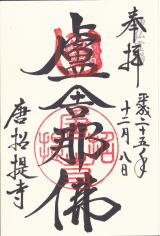 奉拝
平成二十五年
十二月八日
盧舎那佛
唐招提寺